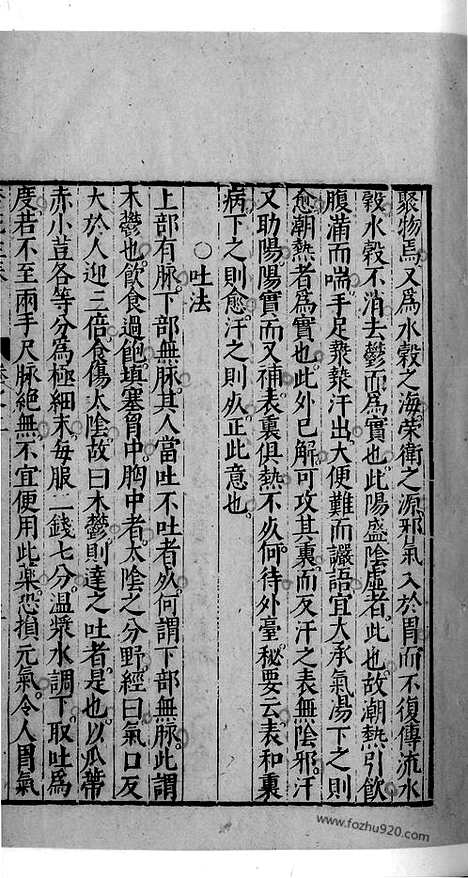 聚物焉又爲水穀之海榮衛之源邪氣入於胃而不復傳流水
穀水穀不消去鬱而爲實也此陽盛陰虛者此也故潮熱引飲
腹滿而喘手足漐漐汗出大便難而讝語宜大承氣湯下之則
愈潮熱者爲實也此外已解可攻其裏而反汗之表無陰邪汗
又助陽陽實而又補表裏俱熱不死何待外臺秘要云表和裏
病下之則愈汗之則死正此意也
○吐法
上部有脉下部無脉其人當吐不吐者死何謂下部無脉此謂
木鬱也飲食過飽填塞胷中胸中者太陰之分野經曰氣口反
大於人迎三倍食傷太陰故曰木鬱則達之吐者是也以瓜蒂
赤小荳各等分爲極細末每服二錢七分溫漿水調下取吐爲
度若不至兩手尺脉絕無不宜便用此藥恐損元氣令人胃氣
www.fozhu920.com